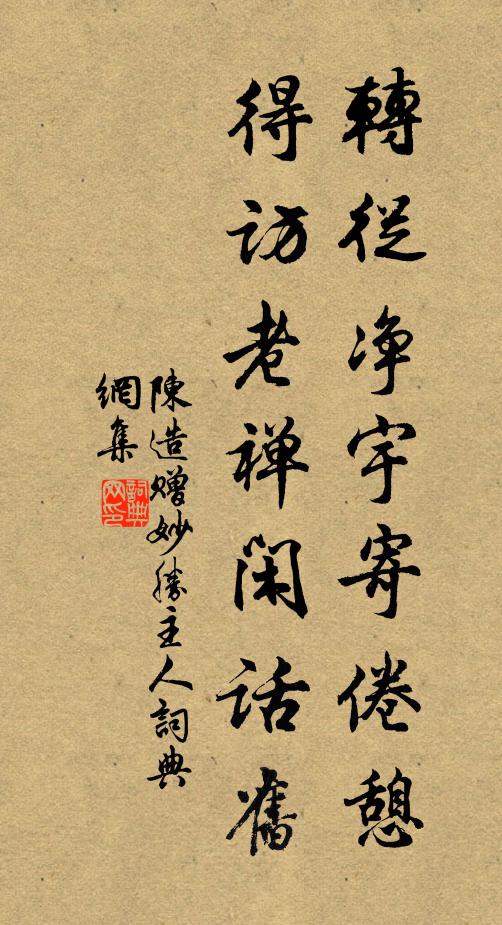 轉從净宇寄倦憩
得訪老禅閑話舊
陳造赠妙勝主人詞典
網集
詞典
网印